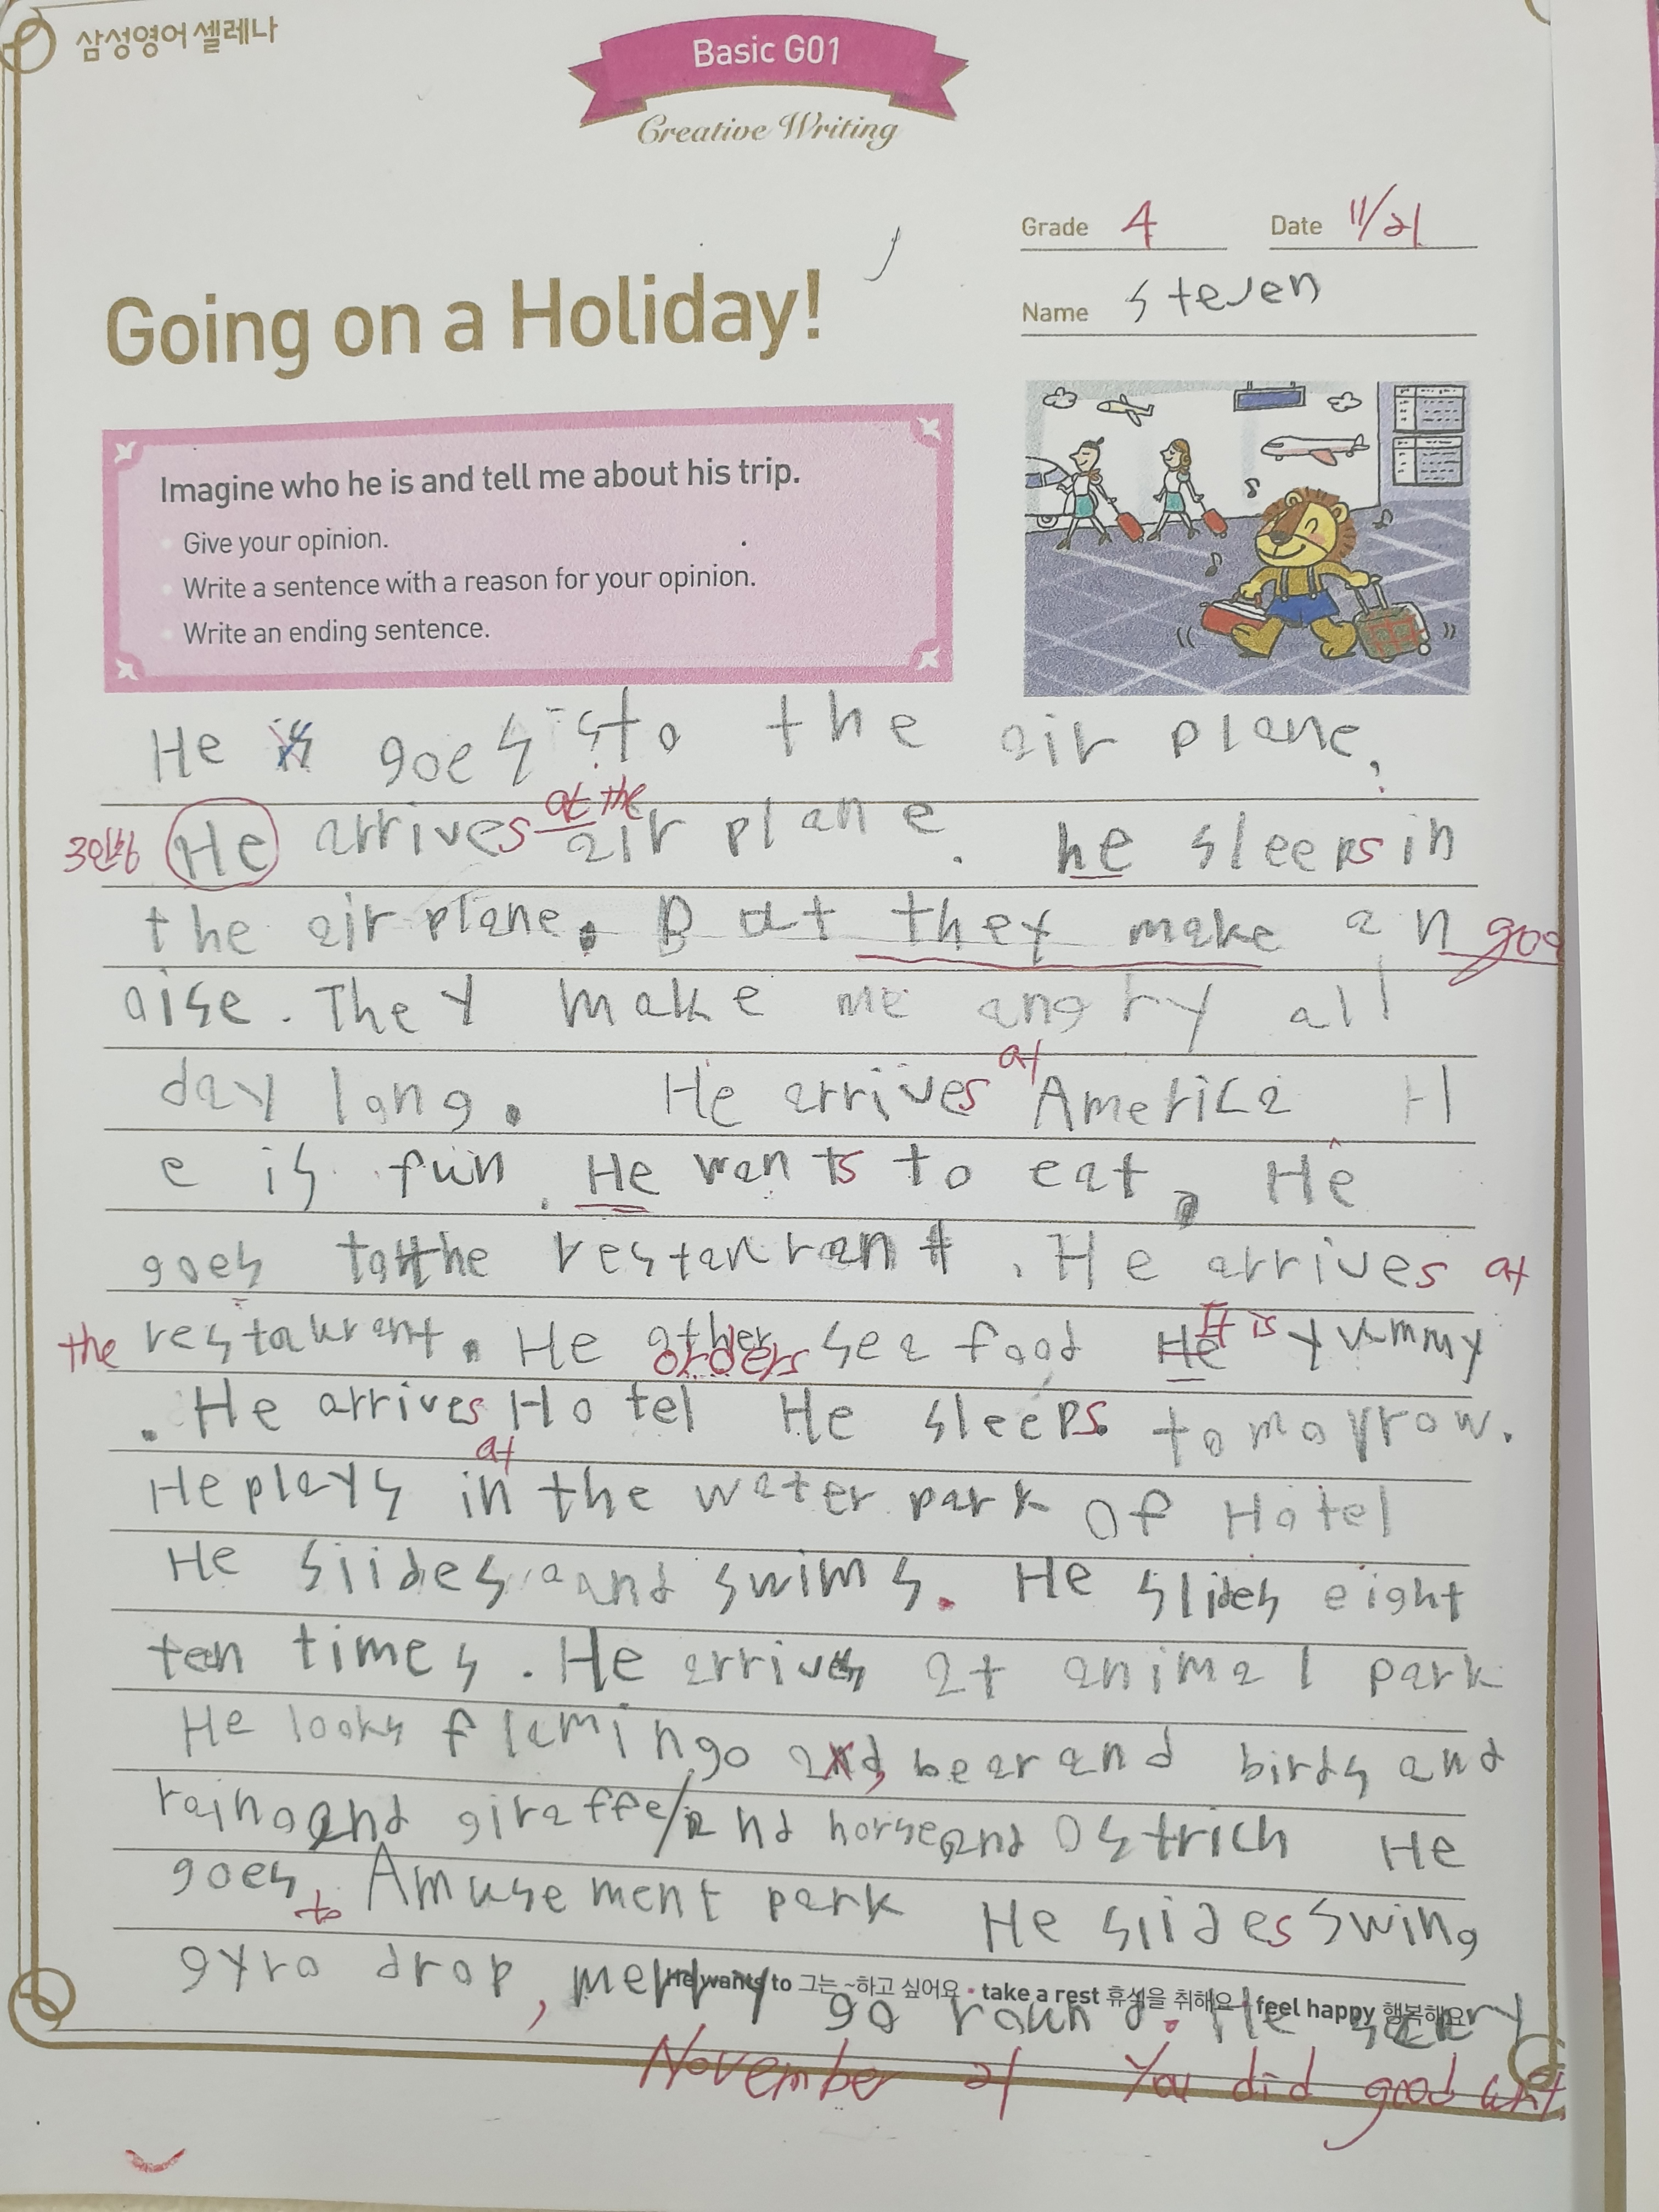 삼성영어 셀레나
Basic G01
Creative Writing
Grade 4 Date 11/21
Name Steven
Going on a Holiday!
Imagine who he is and tell me about his trip.
Give your opinion.
Write a sentence with a reason for your opinion.
Write an ending sentence.
He goes to the air plane.
at the
3인칭 He arrives air plane. he sleeps in
the air plane. But they make a n
oise. They make me angry all
at
day long. He arrives America H
e is fun. He wants to eat, He
goes to the restaurant. He arrives at
It is
the restaurant. He other sea food He yummy
orders
. He arrives Hotel He sleeps tomorrow.
at
He plays in the water park of Hotel
He slides and swims. He slides eight
ten times. He arrives at animal park
He looks flamingo and, bear and birds and
raino and giraffe/and horse and Ostrich He
goes to Amusement park He slides swing
gyro drop, merry go round. He
He wants to 그는 ~하고 싶어요 • take a rest 휴식을 취해요 • feel happy 행복해요
November 21 You did good